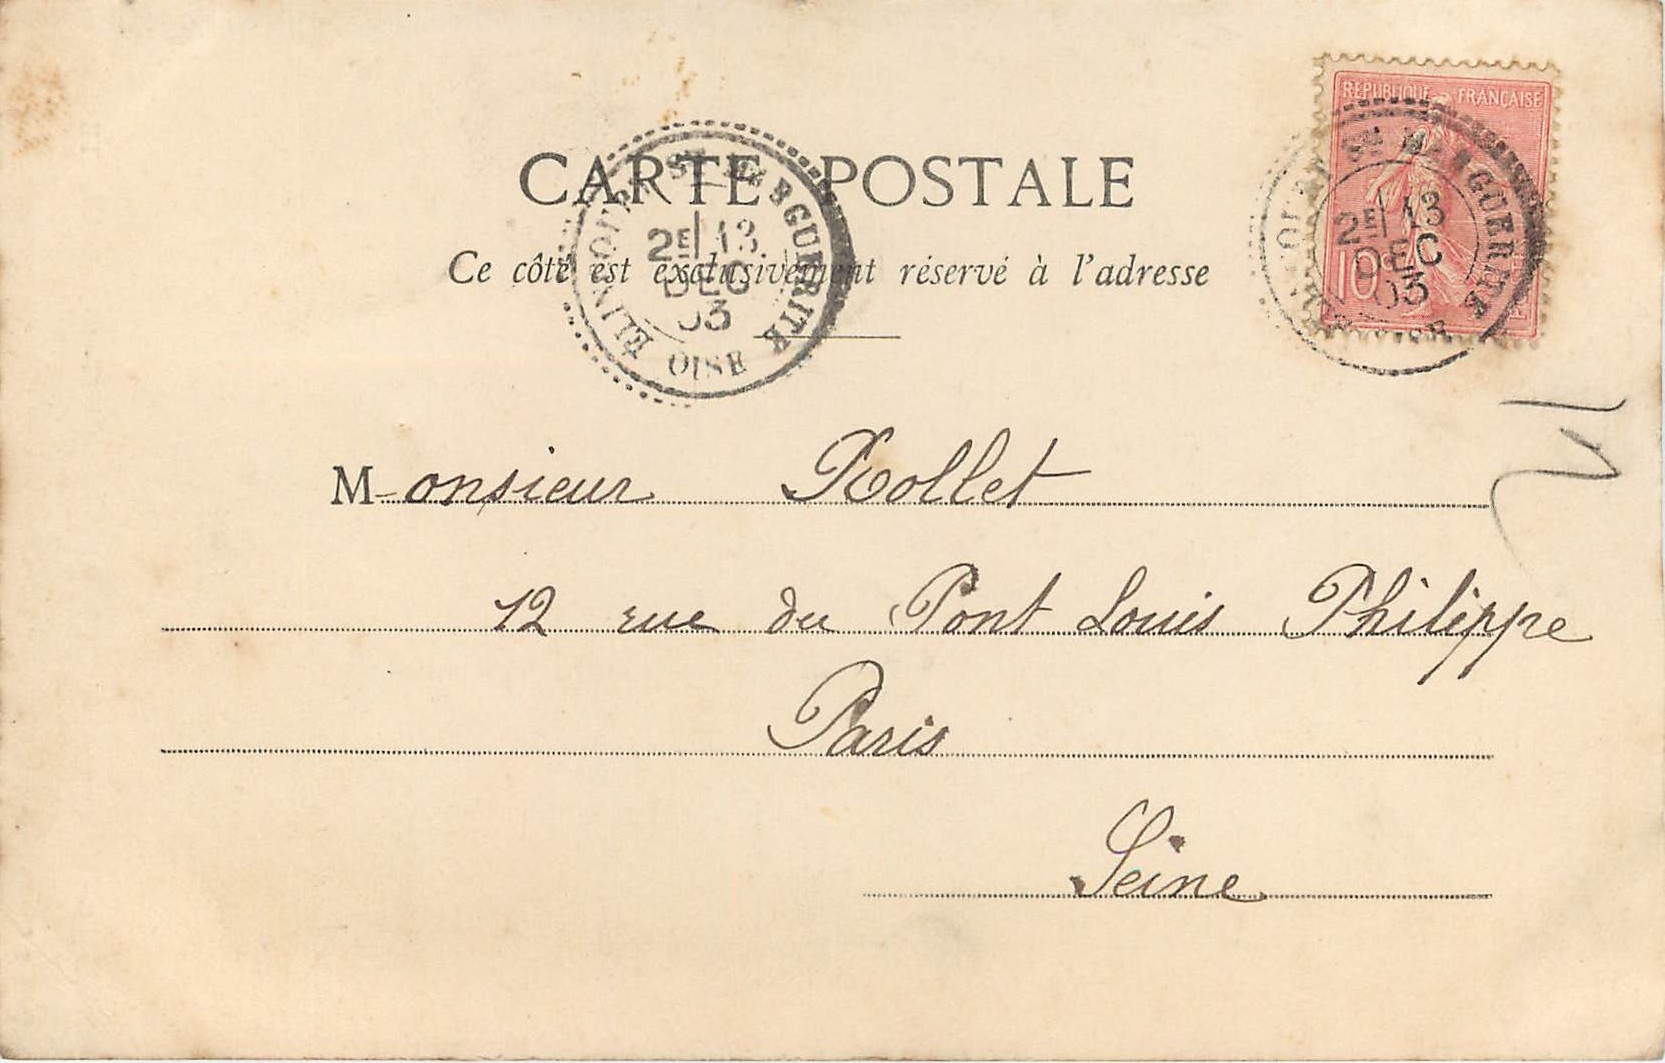 RÉPUBLIQUE FRANÇAISE
10
2E 13
DEC
03
OISE
CARTE POSTALE
ÉLINCOURT STE MARGUERITE
2E 13
DEC
03
OISE
Ce côté est exclusivement réservé à l'adresse
Monsieur Rollet
12 rue du Pont Louis Philippe
Paris
Seine